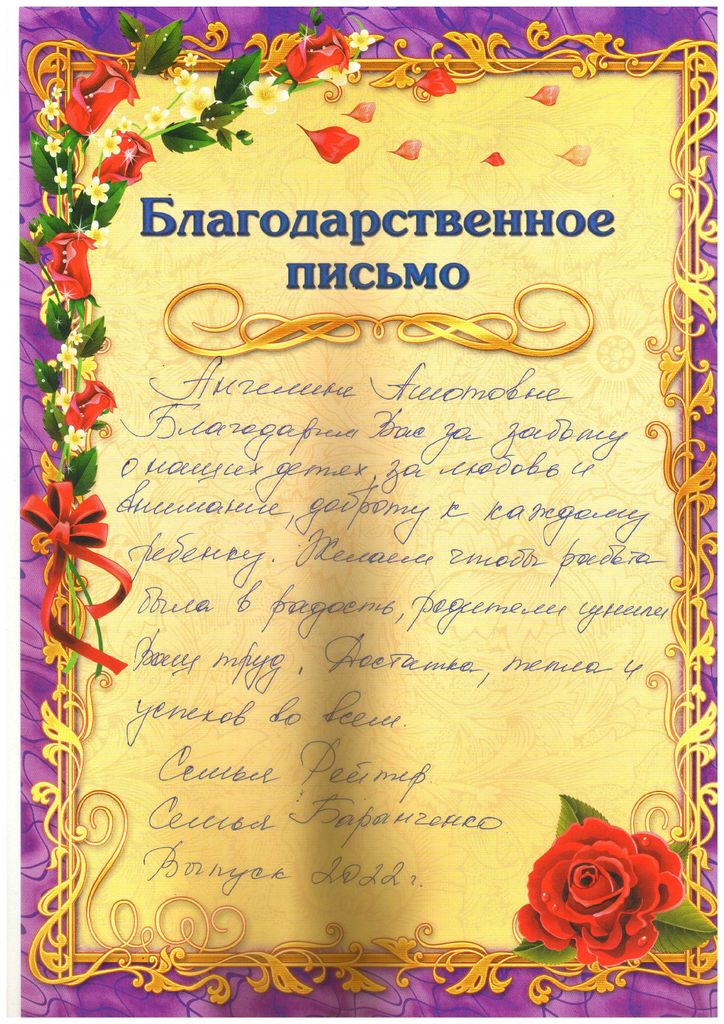 Благодарственное
письмо
Ангелине Ашотовне
Благодарим Вас за заботу
о наших детях, за любовь и
внимание, доброту к каждому
ребенку. Желаем чтобы работа
была в радость, родители ценили
Ваш труд. Достатка, тепла и
успехов во всем.
Семья Рейтер.
Семья Баранченко
Выпуск 2022 г.